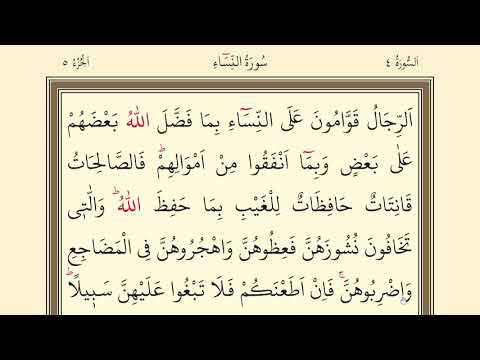 اَلسُّورَةُ ٤ سُورَةُ النِّسَٓاءِ اَلْجُزْءُ ٥
اَلرِّجَالُ قَوَّامُونَ عَلَى النِّسَٓاءِ بِمَا فَضَّلَ اللّٰهُ بَعْضَهُمْ
عَلٰى بَعْضٍ وَبِمَٓا اَنْفَقُوا مِنْ اَمْوَالِهِمْۜ فَالصَّالِحَاتُ
قَانِتَاتٌ حَافِظَاتٌ لِلْغَيْبِ بِمَا حَفِظَ اللّٰهُۜ وَالّٰت۪ى
تَخَافُونَ نُشُوزَهُنَّ فَعِظُوهُنَّ وَاهْجُرُوهُنَّ فِى الْمَضَاجِعِ
وَاضْرِبُوهُنَّۚ فَاِنْ اَطَعْنَكُمْ فَلَا تَبْغُوا عَلَيْهِنَّ سَب۪يلًاۜ